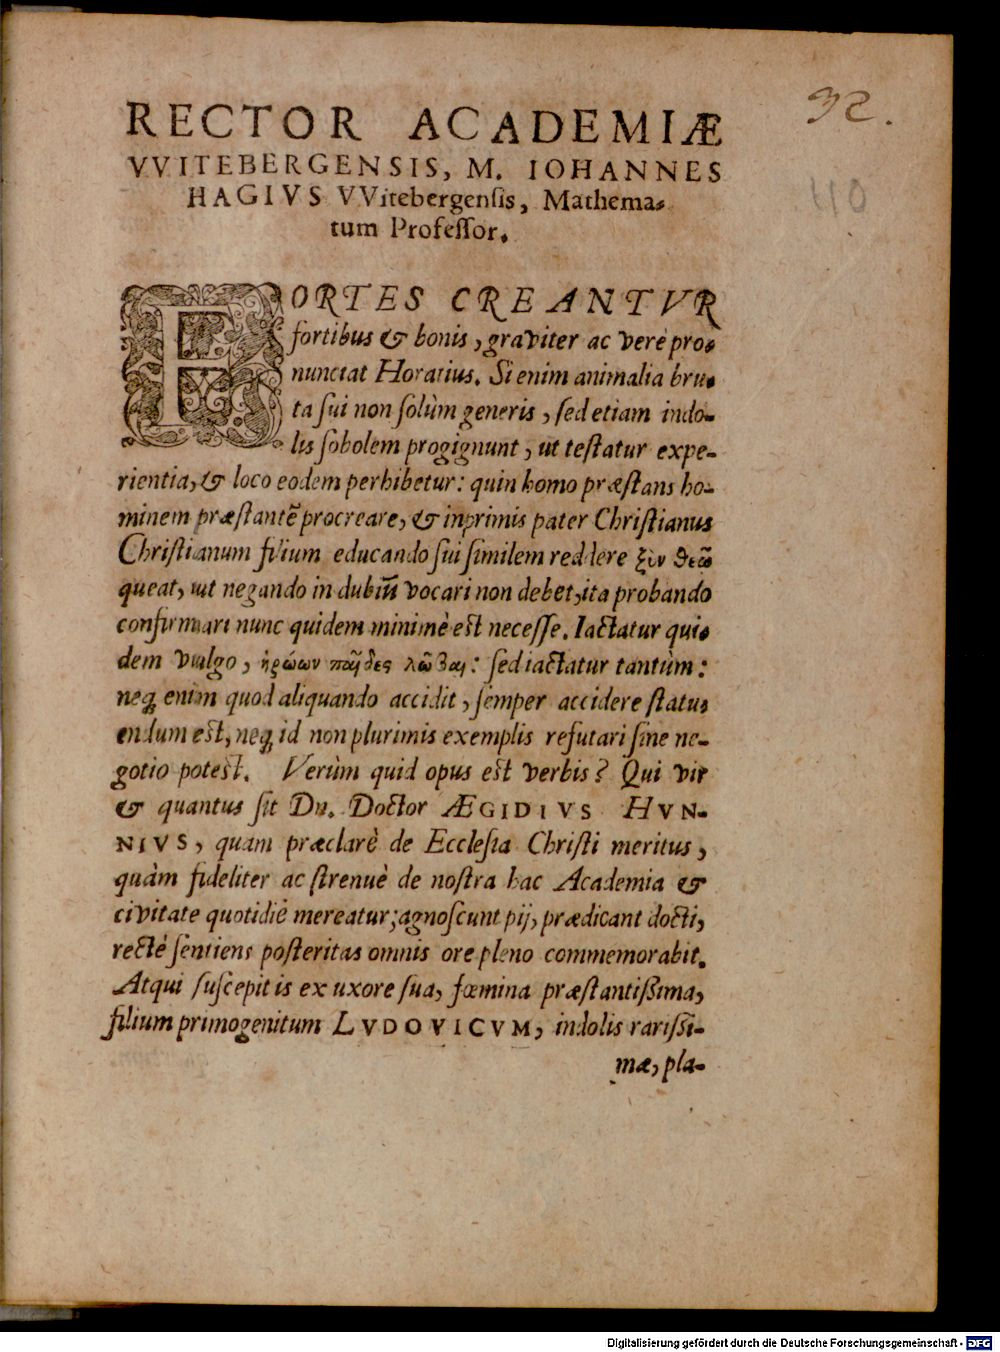 32.
RECTOR ACADEMIÆ
VVITEBERGENSIS, M. IOHANNES
HAGIVS VVitebergensis, Mathema-
tum Professor.
110
FORTES CREANTVR
fortibus & bonis, graviter ac verè pro-
nunctat Horatius. Si enim animalia bru-
ta sui non solùm generis, sed etiam indo-
lis sobolem progignunt, ut testatur expe-
rientia, & loco eodem perhibetur: quin homo præstans ho-
minem præstantẽ procreare, & inprimis pater Christianus
Christianum filium educando sui similem reddere ξὺν θεῶ
queat, uut negando in dubiũ vocari non debet, ita probando
confirmari nunc quidem minimè est necesse. Iactatur qui-
dem vulgo, ἡρώων παῖδες λῶβαι: sed iactatur tantùm:
neq; enim quod aliquando accidit, semper accidere statu-
endum est, neq; id non plurimis exemplis refutari sine ne-
gotio potest. Verùm quid opus est verbis? Qui vir
& quantus sit Dn. Doctor ÆGIDIVS HVN-
NIVS, quam præclarè de Ecclesia Christi meritus,
quàm fideliter ac strenuè de nostra hac Academia &
civitate quotidiè mereatur; agnoscunt pij, prædicant docti,
rectè sentiens posteritas omnis ore pleno commemorabit.
Atqui suscepit is ex uxore sua, fœmina præstantißima,
filium primogenitum LVDOVICVM, indolis rarissi-
mæ, pla-
Digitalisierung gefördert durch die Deutsche Forschungsgemeinschaft - DFG